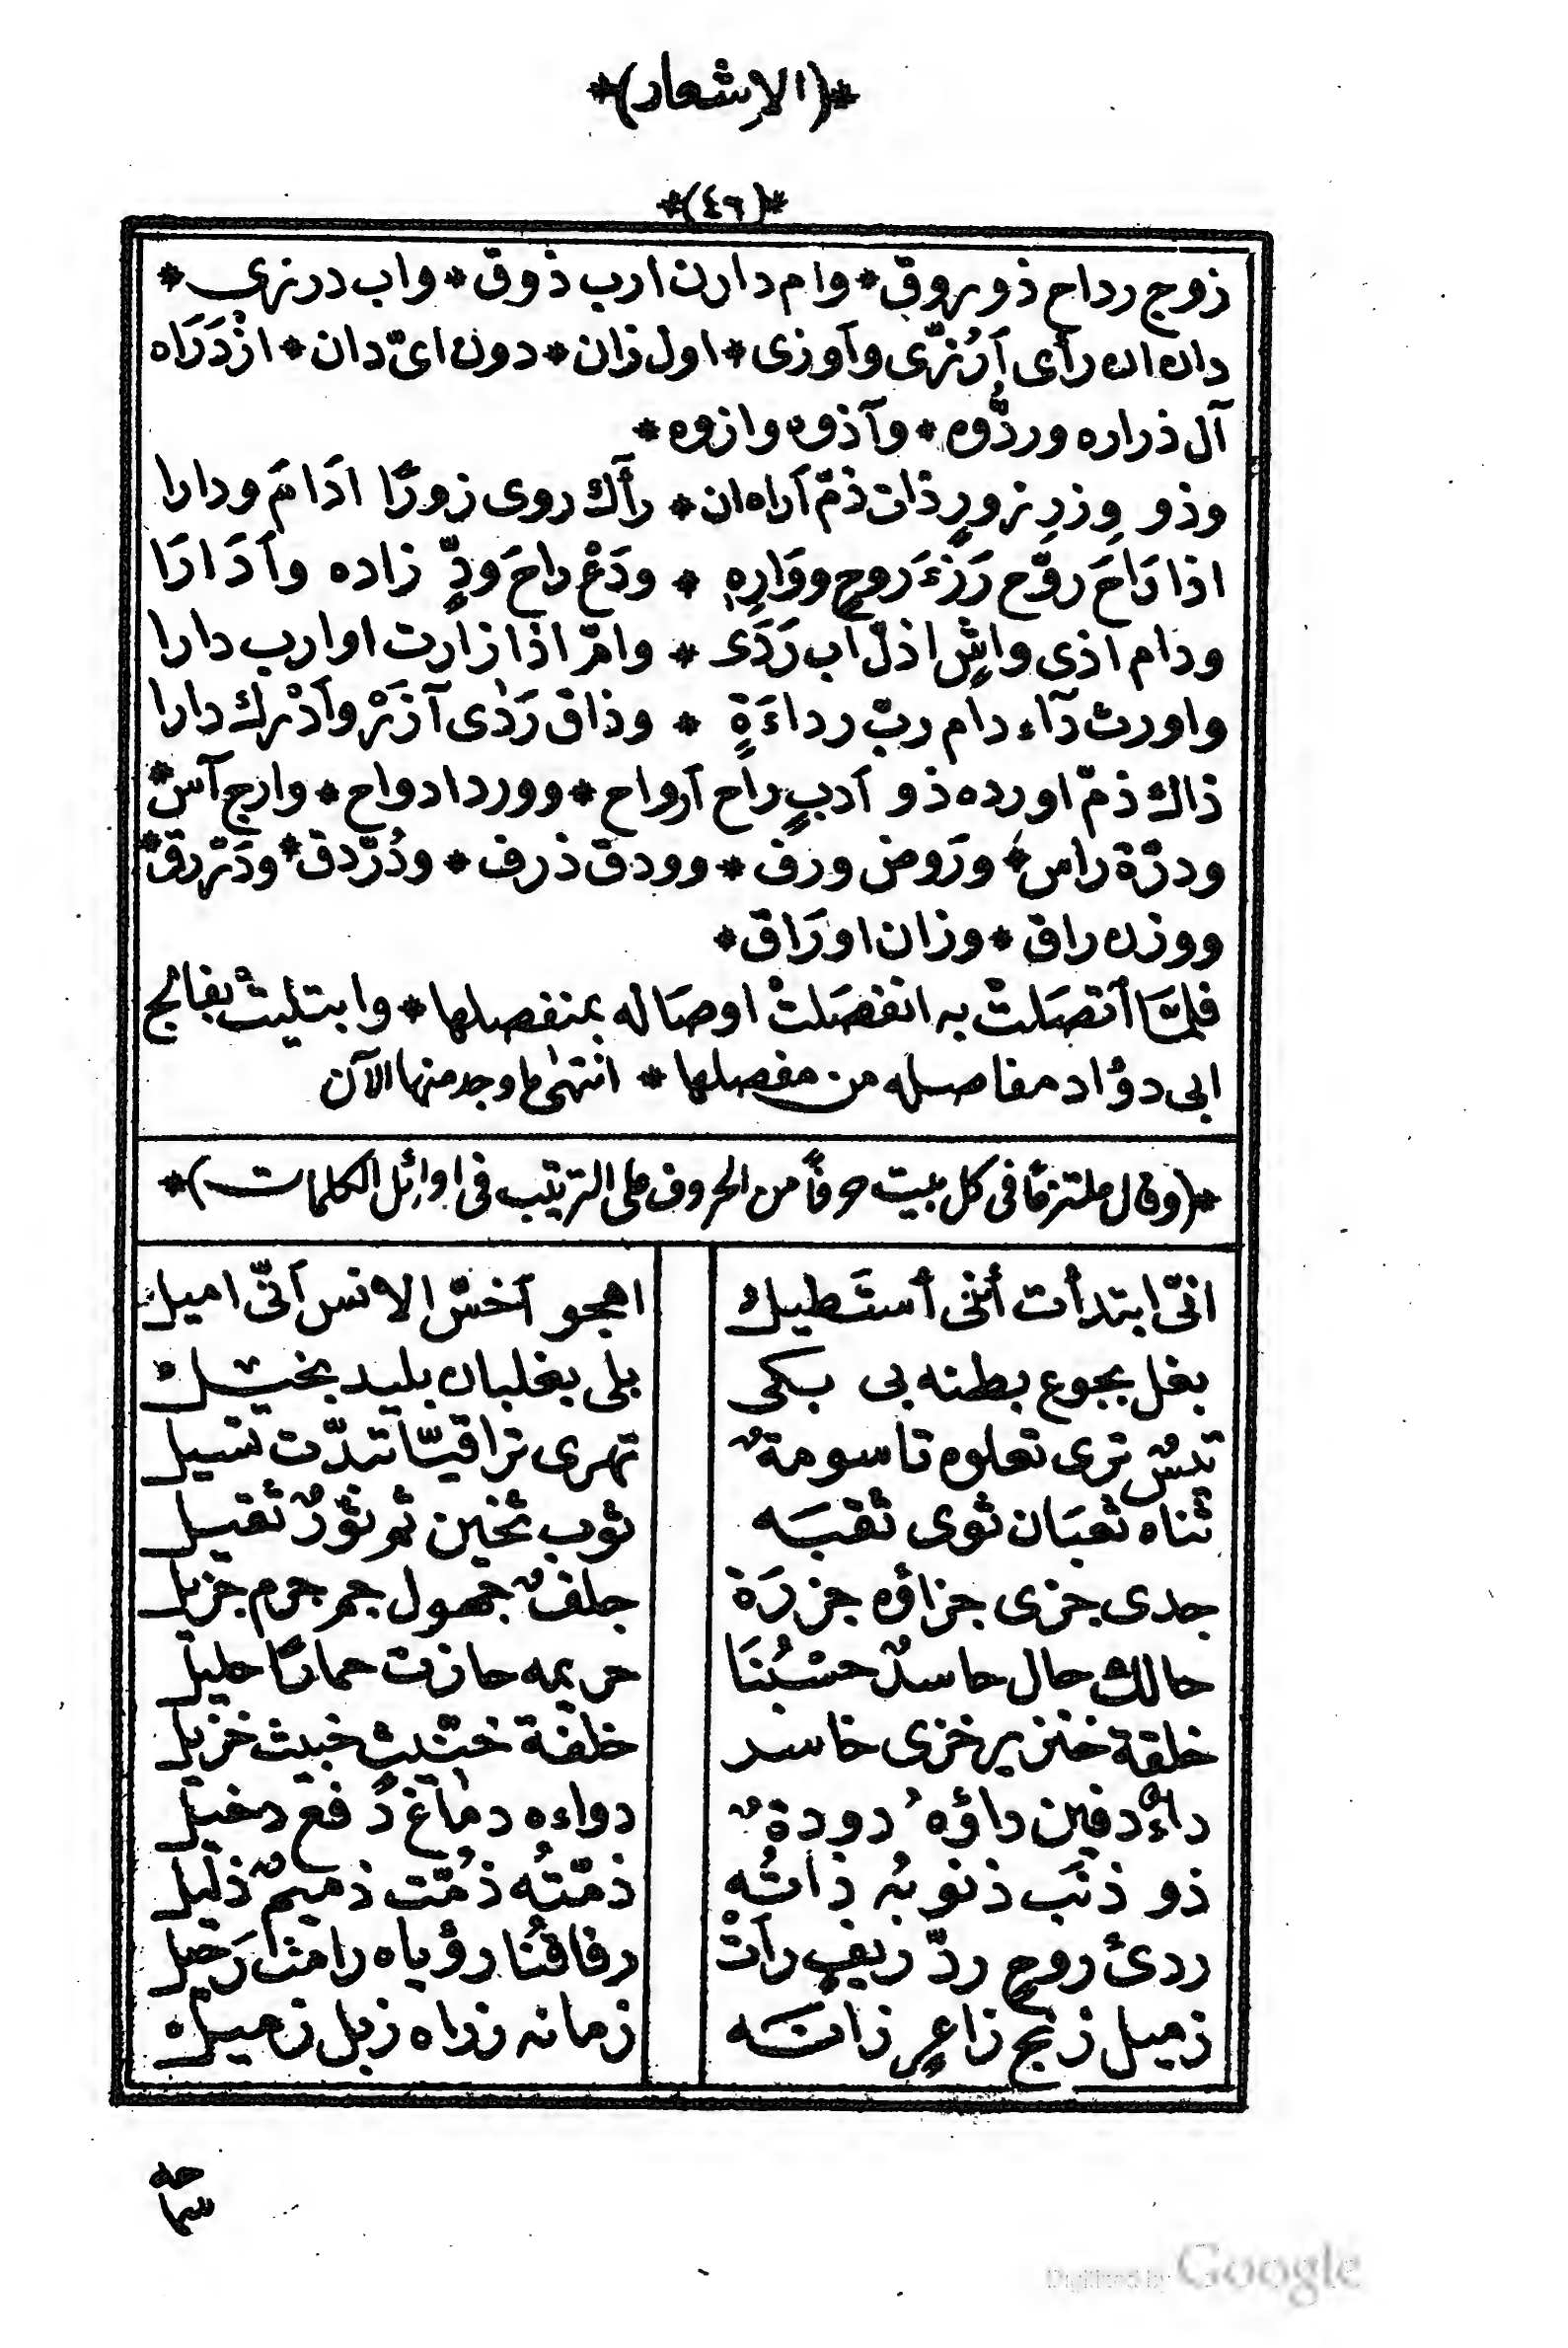 *(الاشعار)*
*(٤٦)*
زوج رداح ذو روق * وام دارن ارب ذوق * واب درزى *
دان ان رأى أزرى وآوزى * اول زان * دون اىّ دان * ازدَرَاه
آل ذراره وردُّوه * وآذوه وازوه *
وذو وِزرِ زورٍ ذات ذمّ آراه ان * رآك روى زورًا ادَامَ ودارا
اذا رَاحَ روّح رَزْءَ روحٍ ووَارِهِ * ودَعْ راحَ ودٍّ زاده وآدَارَا
ودام اذى واشٍ اذلّ اب رَدَى * وامّ اذا زارت اوارب دارا
واورث دآء دام ربّ رداءَةٍ * وذاق رَدٰى آزَرْ وآدْرك دارا
ذاك ذمّ اورده ذو أدبٍ راح أرواح * وورد ادواح * وارج آس *
ودرّة راس * ورَوض ورف * وودق ذرف * ودُرّ دق * ودَرّ رق *
ووزن راق * وزان اورَاق *
فلمّا أتصَلتْ به انفصَلتْ اوصَاله بمنفصلها * وابتليتْ بفالج
ابى دؤاد مفاصله من مفصلها * انتهىٰ ما وجد منها الآن
*(وقال ملتزمًا فى كل بيت حرفًا من الحروف على الترتيب فى اوائل الكلمات)*
انّى ابتدأت أننى أستَطيل اهجو أخسّ الانس أنّى اميل
بغل بجوع بطنه بى بكى بلى بغلبان بليد بخيل
تيسٌ ترى تعلوه تاسومةٌ تهرى تراقيًّا تبدّت تسيل
ثناه ثعبَان ثوى ثقبَه ثوب ثخين ثم ثوْرٌ ثقيل
جدى جزى جزاؤه جزرَة جلفٌ جهول جمر جرم جزيل
حالك حال حاسدٌ حسْبُنَا حريمه حازت حمارًا حليل
خلقة خنزير خزى خاسد خلفة خنّيث خبيث خزيل
داءٌ دفين داؤه دودةٌ دواءه دماغ دفع دخيل
ذو ذنَب ذنوبُه ذاتُه ذمّتُه ذُمّت ذميمٌ ذليل
ردئ روحٍ ردّ ريفٍ رآتْ رفاقنُا رؤياه رامت رَحيل
زميل زنج زاعِرٍ زانَه زمانه زراه زبل زميل
سماحه